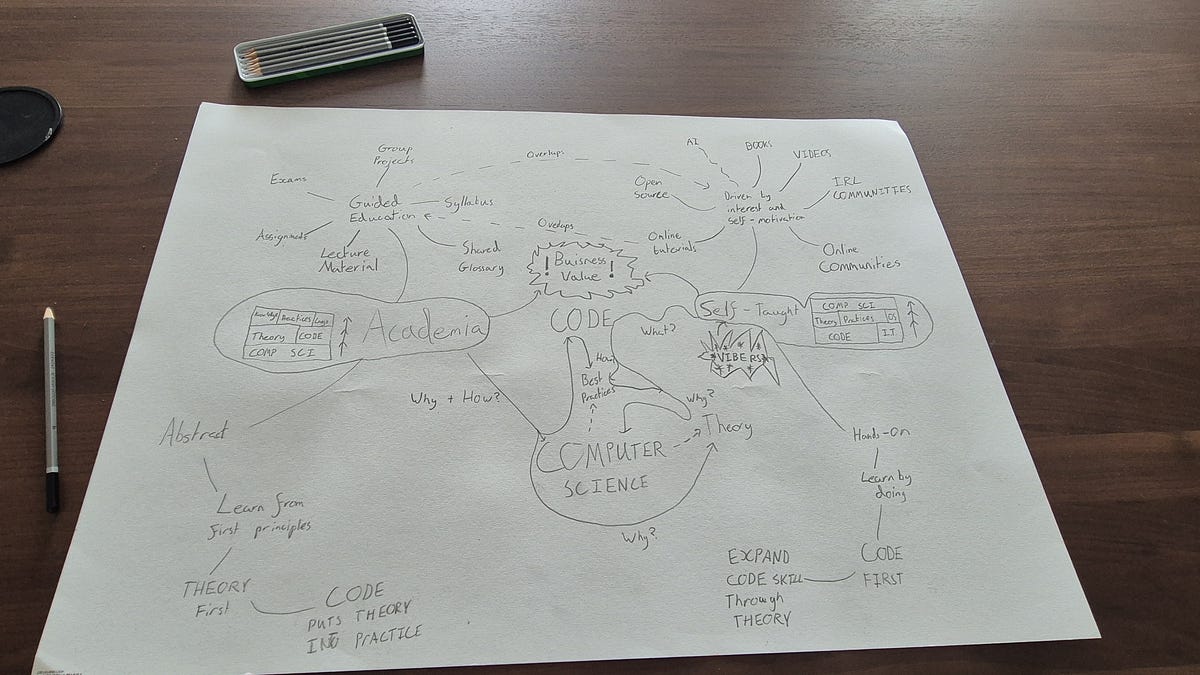 Group
Projects
Exams
Guided
Education
Syllabus
Assignments
Lecture
Material
Shared
Glossary
Overlaps
Ovelaps
AI
BOOKS
VIDEOS
Open
Source
IRL
COMMUNITIES
Driven by
interest and
self-motivation
Online
tutorials
Online
Communities
! Buisness
Value !
CODE
Practices
Theory CODE
COMP SCI
Academia
Self-Taught
COMP SCI
Theory Practices OS
CODE I.T
VIBERS
What?
How
Best
Practices
Why + How?
Why?
Theory
COMPUTER
SCIENCE
Why?
Abstract
Learn from
First principles
THEORY
First
CODE
PUTS THEORY
INTO PRACTICE
Hands-On
Learn by
doing
CODE
FIRST
EXPAND
CODE SKILL
Through
THEORY